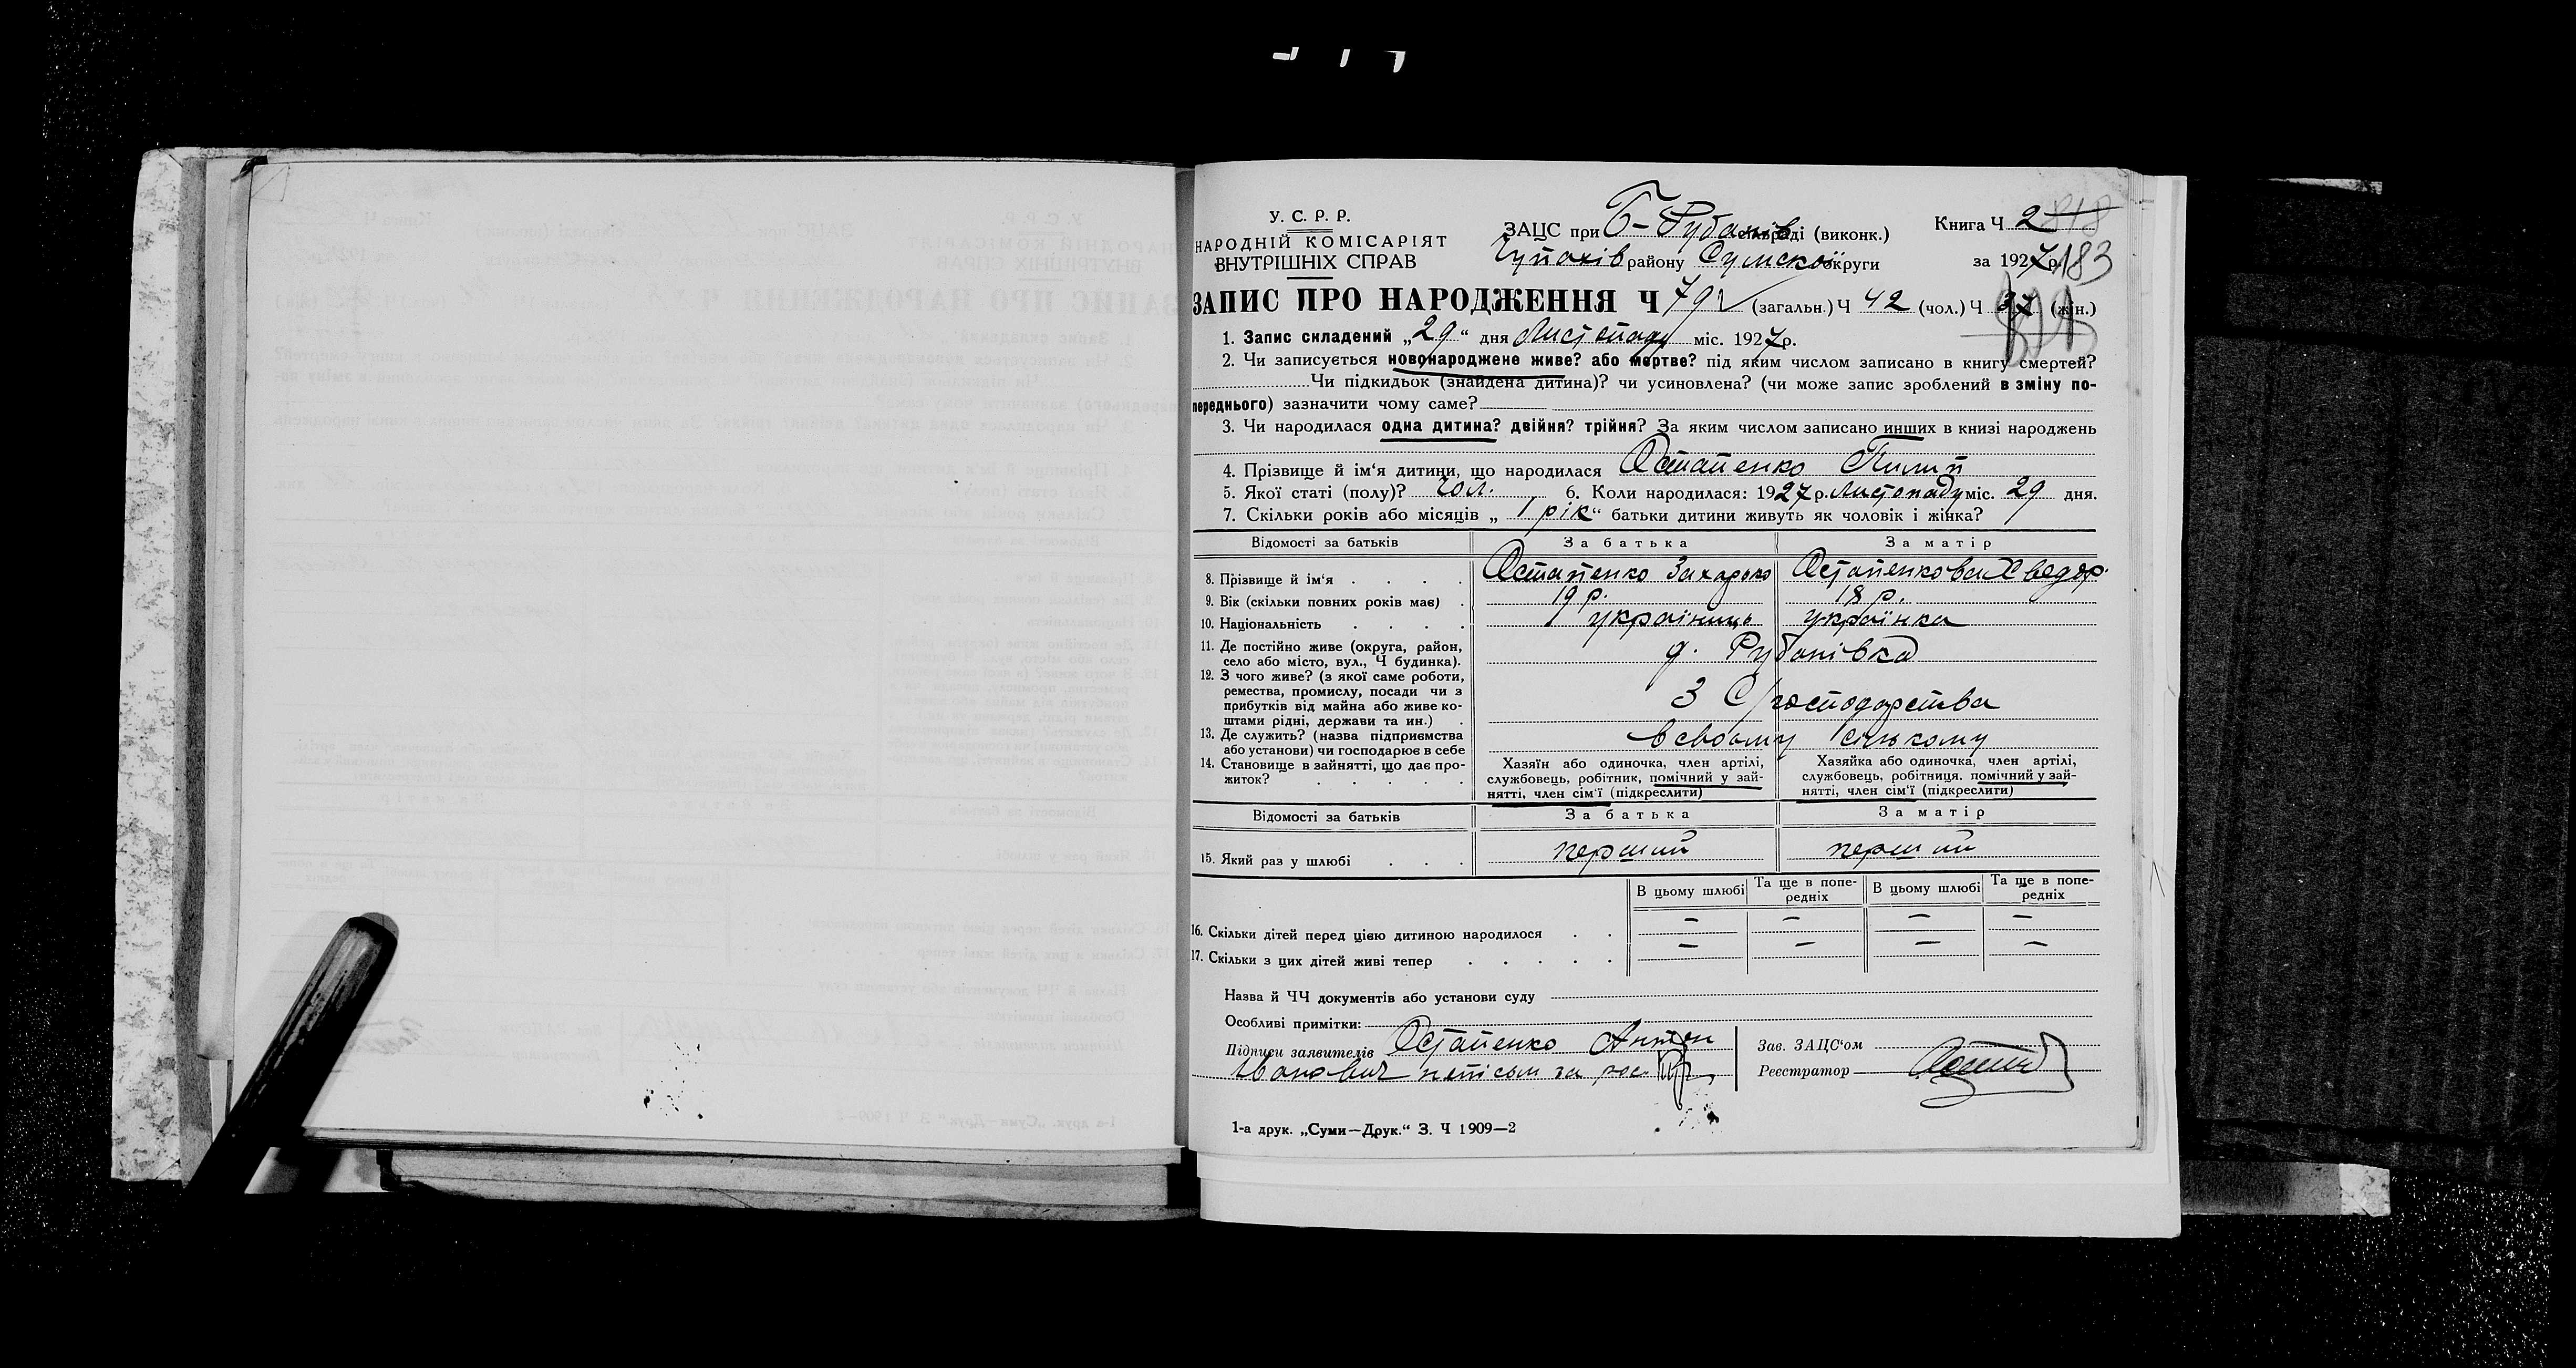 У. С. Р. Р.
НАРОДНІЙ КОМІСАРІЯТ
ВНУТРІШНІХ СПРАВ
ЗАЦС при Б-Рубанів сільраді (виконк.)
Чупахів району Сумської округи
Книга Ч 2
за 1927 р. 183
ЗАПИС ПРО НАРОДЖЕННЯ Ч 79 (загальн.) Ч 42 (чол.) Ч 37 (жін.)
1. Запис складений „29“ дня Листопаду міс. 1927 р.
2. Чи записується новонароджене живе? або мертве? під яким числом записано в книгу смертей?
Чи підкидьок (знайдена дитина)? чи усиновлена? (чи може запис зроблений в зміну по-
переднього) зазначити чому саме?
3. Чи народилася одна дитина? двійня? трійня? За яким числом записано инших в книзі народжень
4. Прізвище й ім‘я дитини, що народилася Остапенко Пилип
5. Якої статі (полу)? чол. 6. Коли народилася: 1927 р. Листопаду міс. 29 дня.
7. Скільки років або місяців „1 рік“ батьки дитини живуть як чоловік і жінка?
Відомості за батьків За батька За матір
8. Прізвище й ім‘я Остапенко Захарько Остапенкова Хведор.
9. Вік (скільки повних років має) 19 р. 18 р.
10. Національність українець українка
11. Де постійно живе (округа, район,
село або місто, вул., Ч будинка).
д. Рубанівка
12. З чого живе? (з якої саме роботи,
ремества, промислу, посади чи з
прибутків від майна або живе ко-
штами рідні, держави та ин.)
З С/господарства
13. Де служить? (назва підприємства
або установи) чи господарює в себе
в своьому сільському
14. Становище в зайнятті, що дає про-
житок?
Хазяїн або одиночка, член артілі,
службовець, робітник, помічний у зай-
нятті, член сім‘ї (підкреслити)
Хазяйка або одиночка, член артілі,
службовець, робітниця, помічний у зай-
нятті, член сім‘ї (підкреслити)
Відомості за батьків За батька За матір
15. Який раз у шлюбі перший перший
В цьому шлюбі Та ще в попе-
редніх В цьому шлюбі Та ще в попе-
редніх
16. Скільки дітей перед цією дитиною народилося — — — —
17. Скільки з цих дітей живі тепер — — — —
Назва й ЧЧ документів або установи суду
Особливі примітки:
Підписи заявителів Остапенко Антон
Іванович за
Зав. ЗАЦС‘ом
Реєстратор
1-а друк. „Суми—Друк.“ З. Ч 1909—2